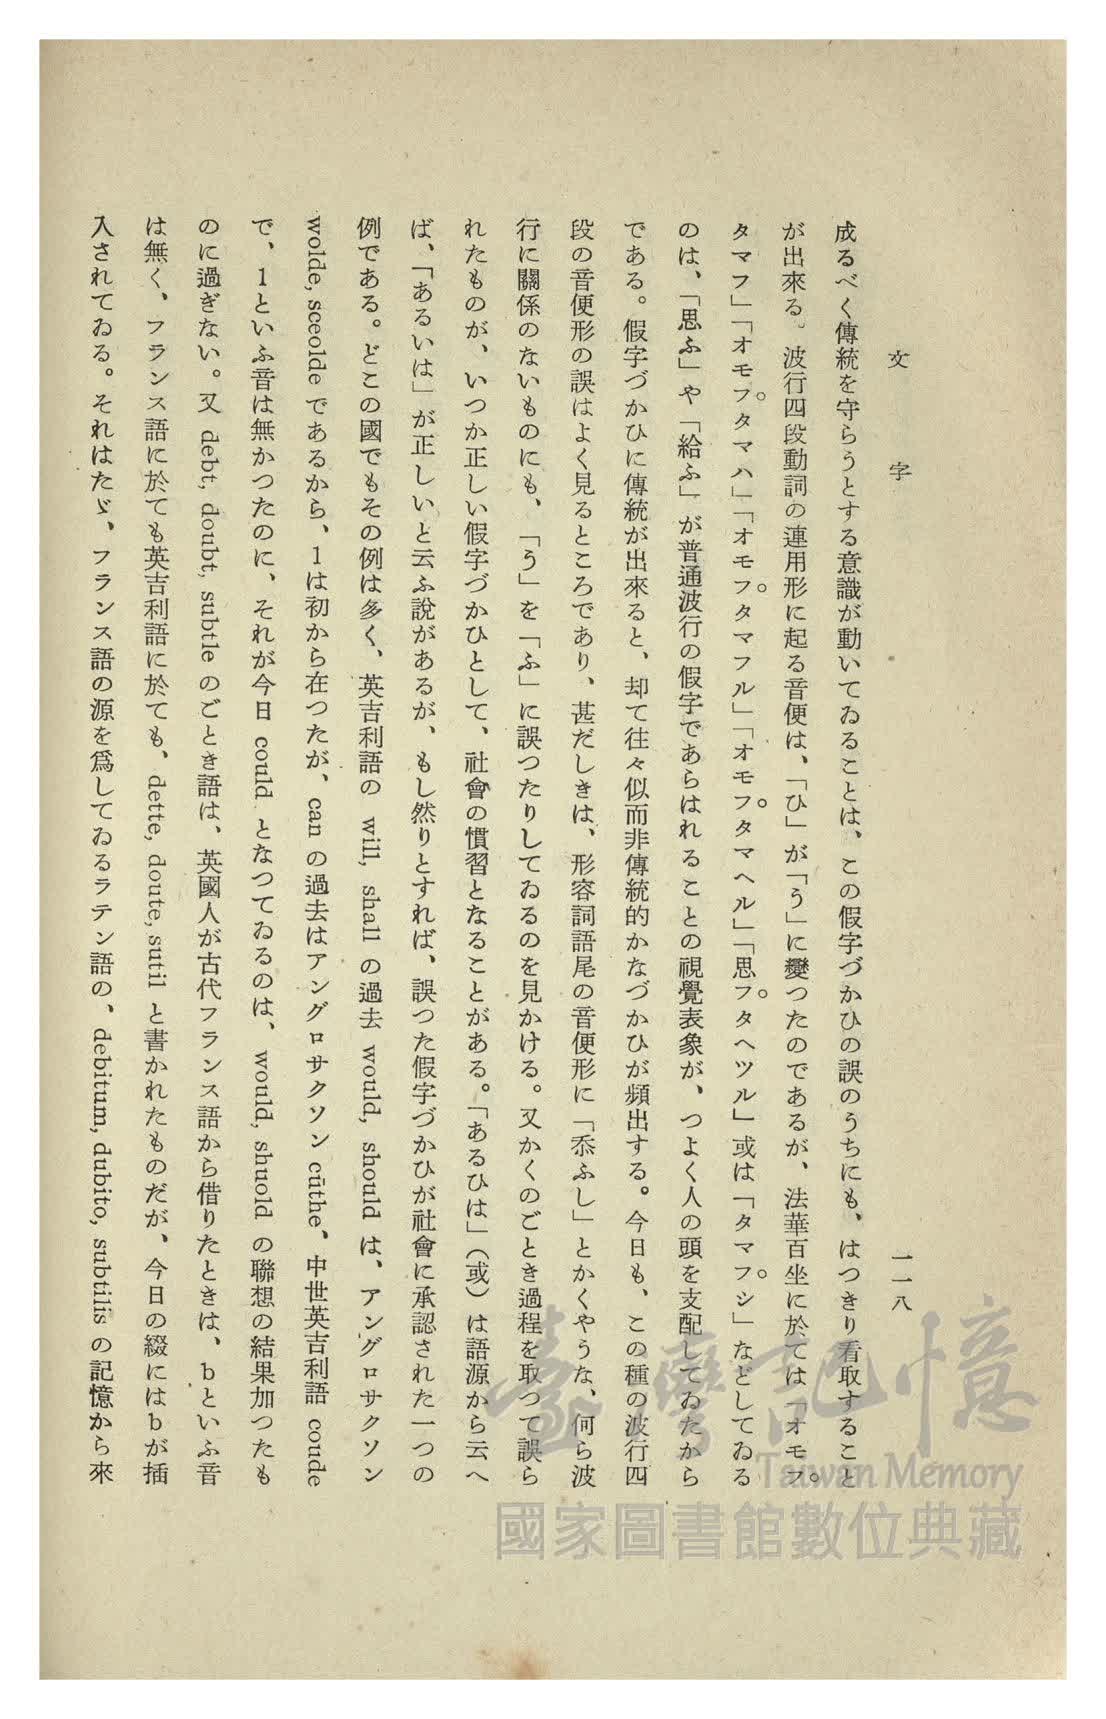 文字
一一八
成るべく傳統を守らうとする意識が動いてゐることは、この假字づかひの誤のうちにも、はつきり看取すること
が出來る。波行四段動詞の連用形に起る音便は、「ひ」が「う」に變つたのであるが、法華百坐に於ては「オモフ
タマフ」「オモフタマハ」「オモフタマフル」「オモフタマヘル」「思フタヘツル」或は「タマフシ」などしてゐる
のは、「思ふ」や「給ふ」が普通波行の假字であらはれることの視覺表象が、つよく人の頭を支配してゐたから
である。假字づかひに傳統が出來ると、却て往々似而非傳統的かなづかひが頻出する。今日も、この種の波行四
段の音便形の誤はよく見るところであり、甚だしきは、形容詞語尾の音便形に「忝ふし」とかくやうな、何ら波
行に關係のないものにも、「う」を「ふ」に誤つたりしてゐるのを見かける。又かくのごとき過程を取つて誤ら
れたものが、いつか正しい假字づかひとして、社會の慣習となることがある。「あるひは」（或）は語源から云へ
ば、「あるいは」が正しいと云ふ說があるが、もし然りとすれば、誤つた假字づかひが社會に承認された一つの
例である。どこの國でもその例は多く、英吉利語の will, shall の過去 would, should は、アングロサクソン
wolde, sceolde であるから、lは初から在つたが、can の過去はアングロサクソン cūthe、中世英吉利語 coude
で、lといふ音は無かつたのに、それが今日 could となつてゐるのは、would, shuold の聯想の結果加つたも
のに過ぎない。又 debt, doubt, subtle のごとき語は、英國人が古代フランス語から借りたときは、bといふ音
は無く、フランス語に於ても英吉利語に於ても、dette, doute, sutil と書かれたものだが、今日の綴にはbが插
入されてゐる。それはたゞ、フランス語の源を爲してゐるラテン語の、debitum, dubito, subtilis の記憶から來
臺灣記憶
Taiwan Memory
國家圖書館數位典藏